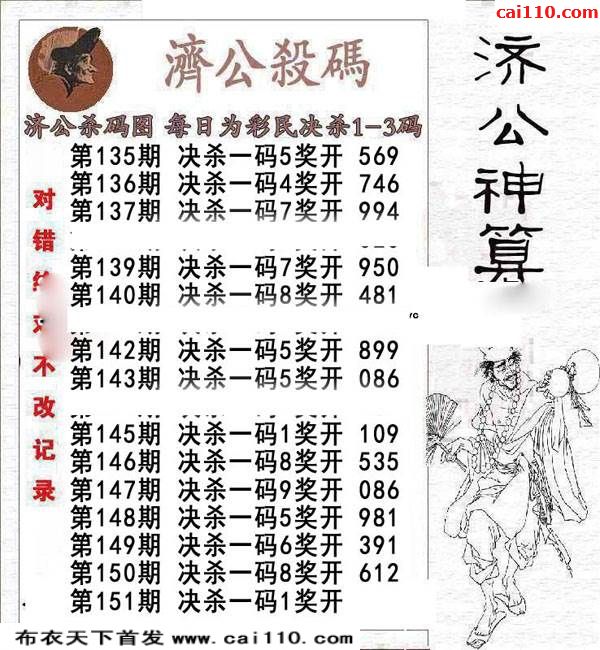 cai110.com
濟公殺碼
济公杀码图 每日为彩民决杀1-3码
第135期 决杀一码5奖开 569
第136期 决杀一码4奖开 746
第137期 决杀一码7奖开 994
第139期 决杀一码7奖开 950
第140期 决杀一码8奖开 481
第142期 决杀一码5奖开 899
第143期 决杀一码5奖开 086
第145期 决杀一码1奖开 109
第146期 决杀一码8奖开 535
第147期 决杀一码9奖开 086
第148期 决杀一码5奖开 981
第149期 决杀一码6奖开 391
第150期 决杀一码8奖开 612
第151期 决杀一码1奖开
对错
不改记录
济公神算
布衣天下首发 www.cai110.com